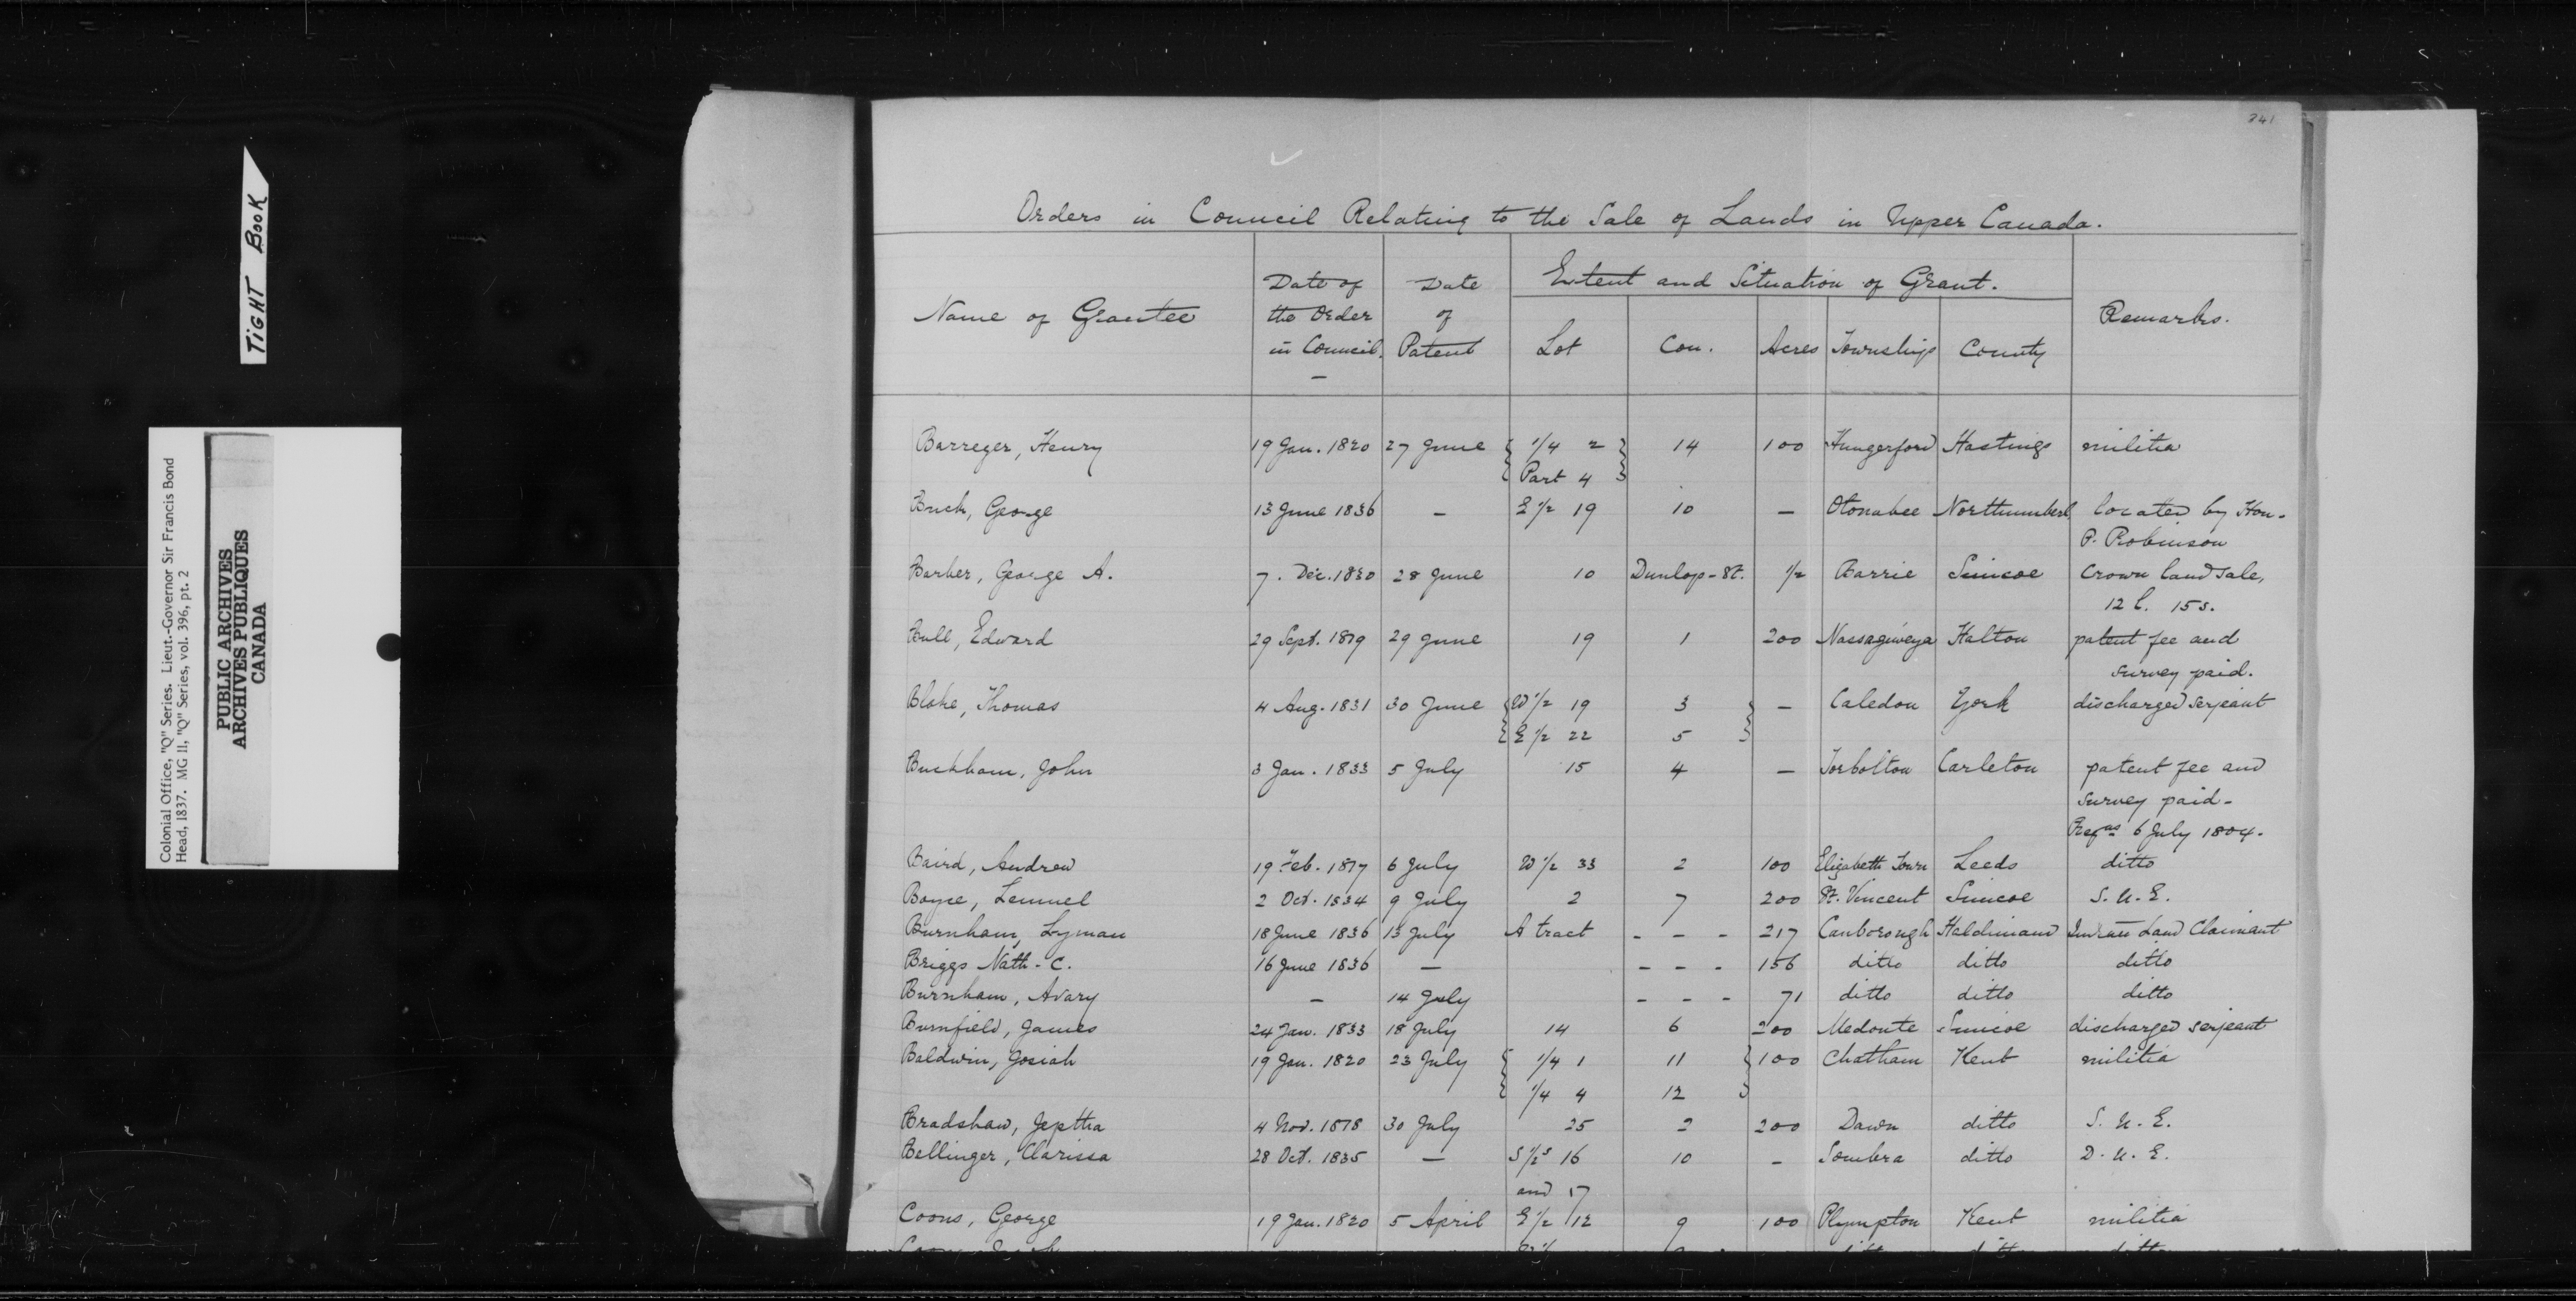 TIGHT BOOK
Colonial Office, "Q" Series. Lieut.-Governor Sir Francis Bond
Head, 1837. MG 11, "Q" Series, vol. 396, pt. 2
PUBLIC ARCHIVES
ARCHIVES PUBLIQUES
CANADA
341
Orders in Council Relating to the Sale of Lands in Upper Canada.
Name of Grantee | Date of the Order in Council. | Date of Patent | Extent and Situation of Grant. | Remarks.
Lot | Con. | Acres | Townships | County
Barreger, Henry 19 Jan. 1820 27 June 1/4 2 14 100 Hungerford Hastings militia
Part 4
George 13 June 1836 — E 1/2 19 10 — Otonabee Northumberl. located by Hon.
P. Robinson
Barber, George A. 7. Dec. 1830 28 June 10 Dunlop-St. 1/2 Barrie Simcoe Crown land sale,
12 l. 15 s.
Bull, Edward 29 Sept. 29 June 19 1 200 Nassagiweya Halton patent fee and
survey paid.
Blake, Thomas 4 Aug. 1831 30 June W 1/2 19 3 — Caledon York discharged serjeant
E 1/2 22 5
Buckham, John 3 Jan. 1833 5 July 15 4 — Torbolton Carleton patent fee and
survey paid -
6 July 1804.
Baird, Andrew 19 Feb. 6 July W 1/2 33 2 100 Elizabeth Town Leeds ditto
Boyce, Lemuel 2 Oct. 1834 9 July 2 7 200 St. Vincent Simcoe S. U. E.
Burnham, Lyman 18 June 1836 13 July A tract - - - 217 Canborough Haldimand Indian Land Claimant
Briggs Nath - C. 16 June 1836 — - - - 156 ditto ditto ditto
Burnham, Avary — 14 July - - - 71 ditto ditto ditto
Burnfield, James 24 Jan. 1833 18 July 14 6 200 Medonte Simcoe discharged serjeant
Baldwin, Josiah 19 Jan. 1820 23 July 1/4 1 11 100 Chatham Kent militia
1/4 4 12
Bradshaw, Jeptha 4 Nov. 1818 30 July 25 2 200 Dawn ditto S. U. E.
Bellinger, Clarissa 28 Oct. 1835 — S 1/2s 16 10 - Sombra ditto D. U. E.
and 17
Coons, George 19 Jan. 1820 5 April E 1/2 12 9 100 Plympton Kent militia